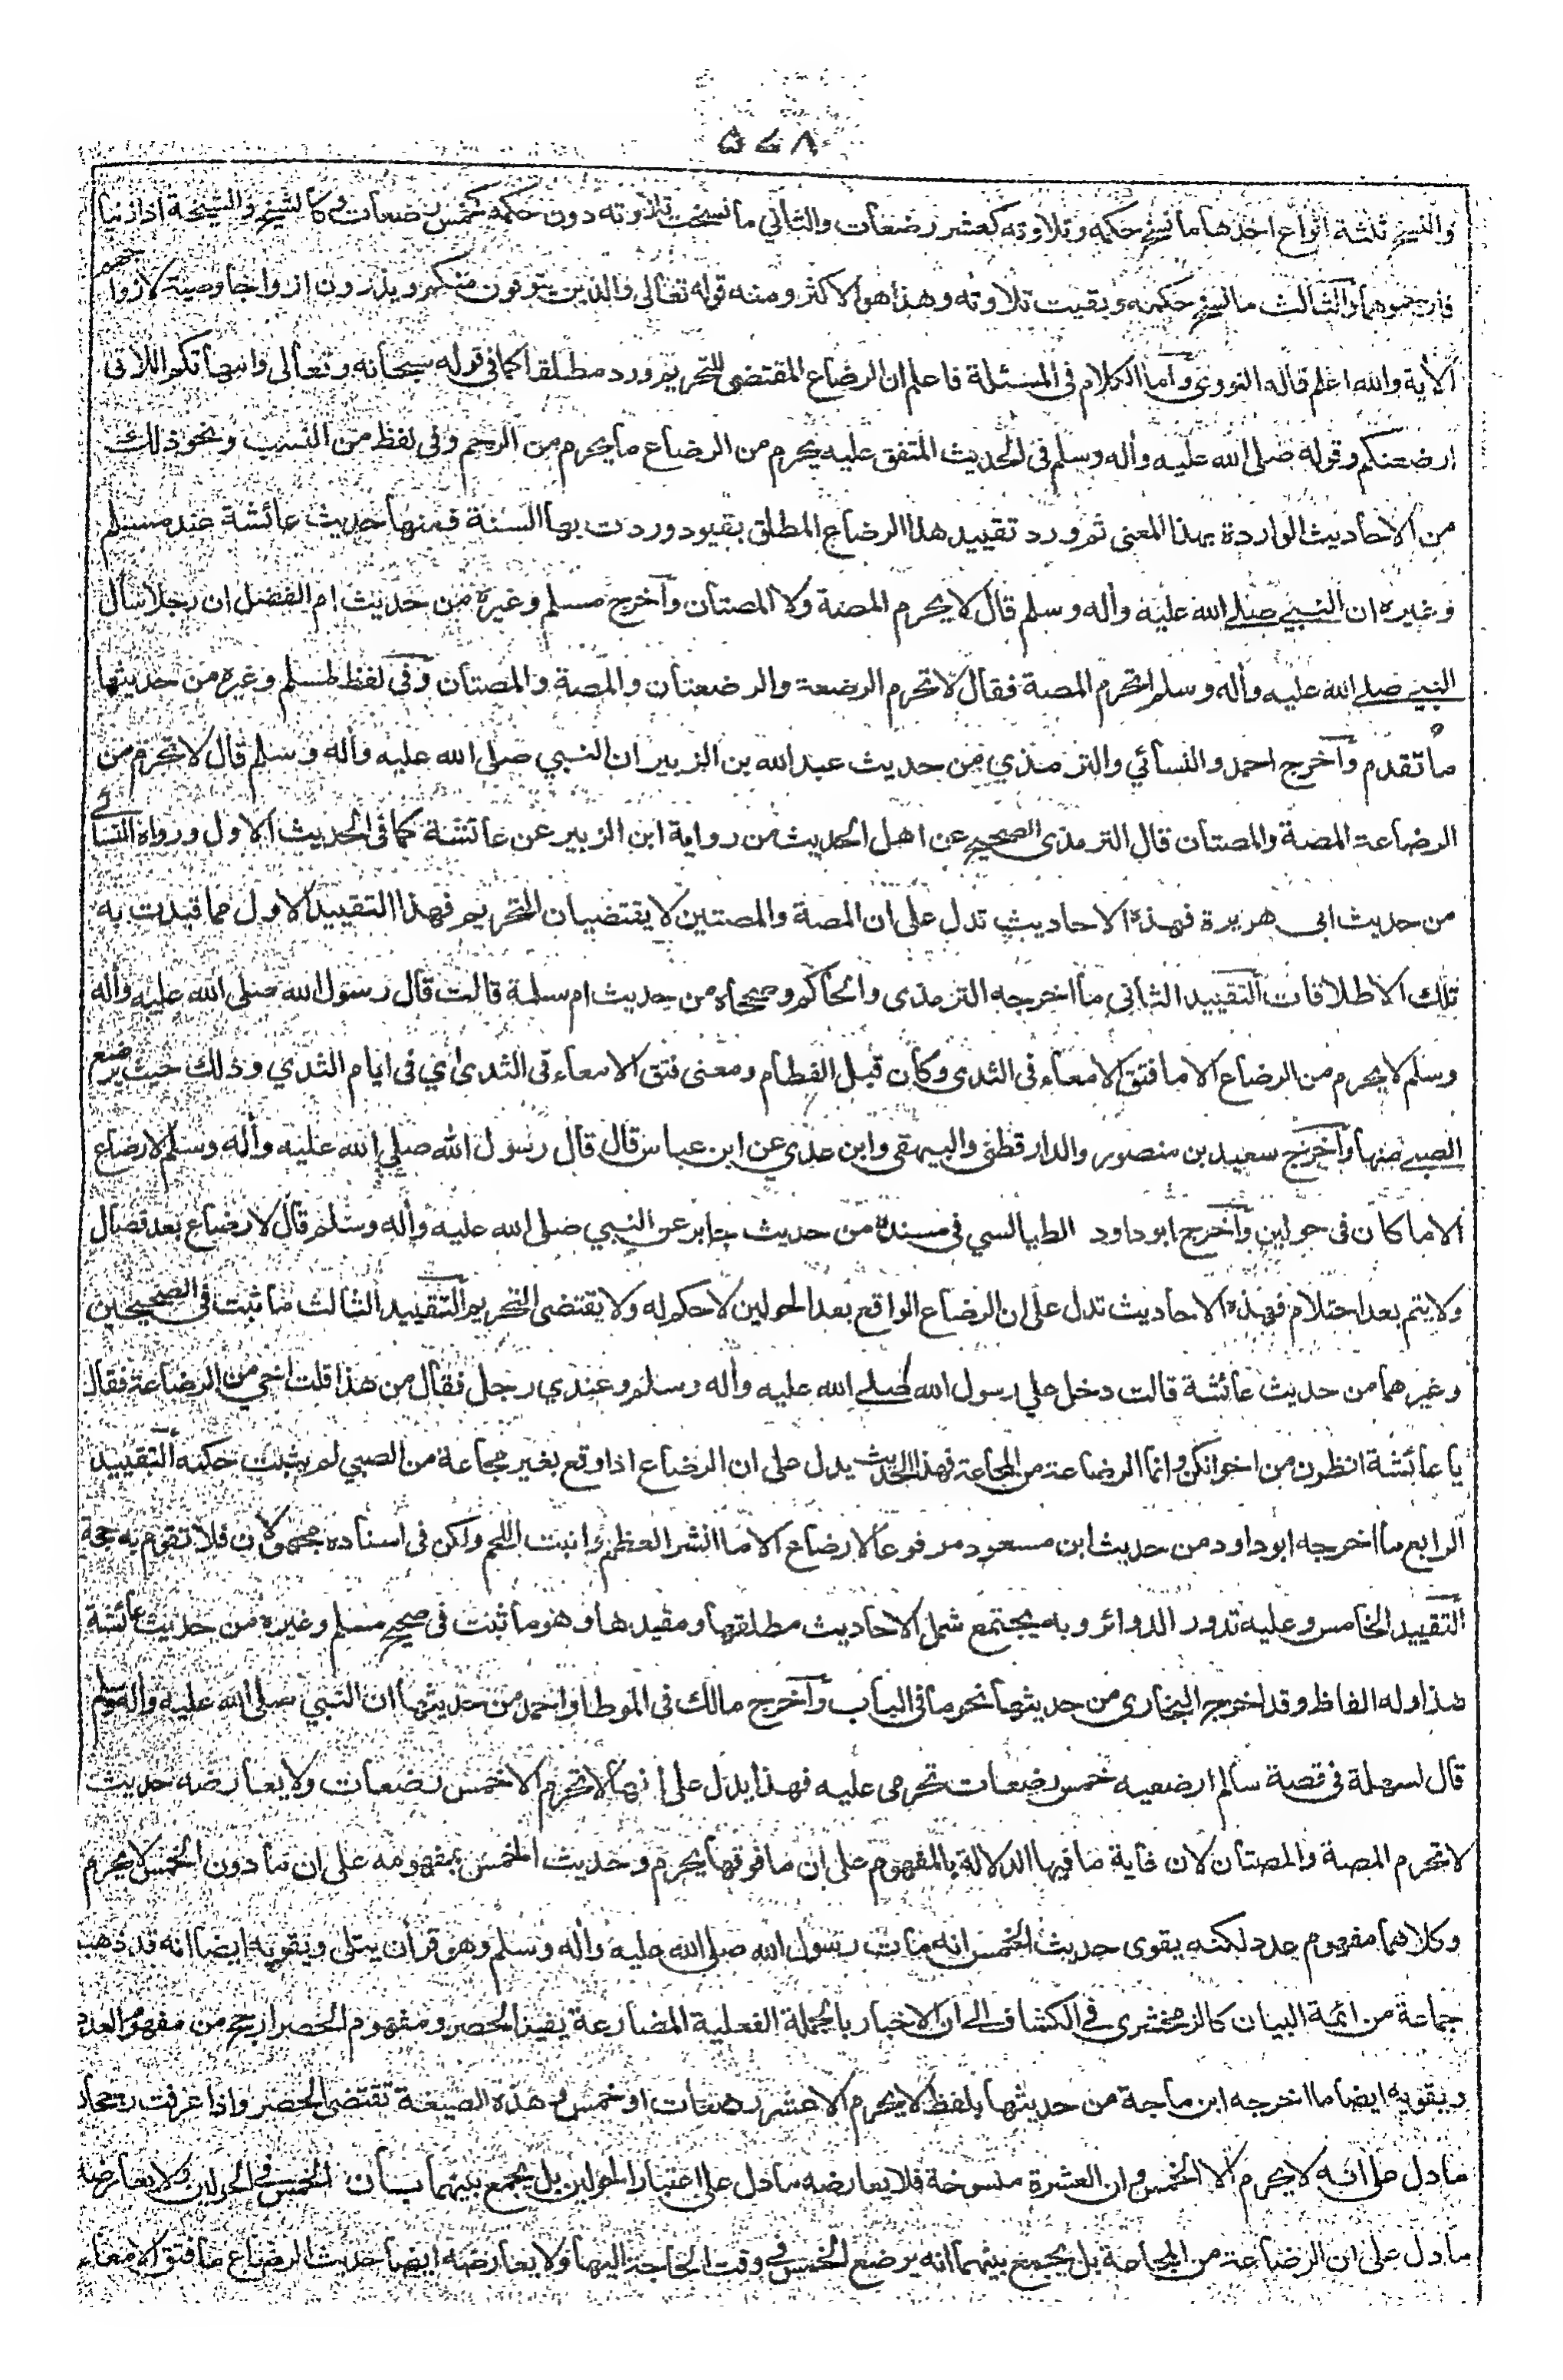 ٥٦٨
والنسخ ثلثة انواع احدها ما نسخ حكمه وتلاوته كعشر رضعات والثاني ما نسخت تلاوته دون حكمه كخمس رضعات وكالشيخ والشيخة اذا زنيا
فارجموهما والثالث ما نسخ حكمه وبقيت تلاوته وهذا هو الاكثر ومنه قوله تعالى والذين يتوفون منكم ويذرون ازواجا وصية لازواجهم
الأية والله اعلم قاله النووي واما الكلام فى المسئلة فاعلم ان الرضاع المقتضى للتحريم ورد مطلقا كما فى قوله سبحانه وتعالى وامهاتكم اللاتى
ارضعنكم وقوله صلى الله عليه وأله وسلم فى الحديث المتفق عليه يحرم من الرضاع ما يحرم من الرحم وفى لفظ من النسب ونحو ذلك
من الاحاديث الواردة بهذا المعنى ثم ورد تقييد هذا الرضاع المطلق بقيود وردت بها السنة فمنها حديث عائشة عند مسلم
وغيره ان النبي صلى الله عليه وأله وسلم قال لا يحرم المصة ولا المصتان وأخرج مسلم وغيره من حديث ام الفضل ان رجلا سأل
النبي صلى الله عليه وأله وسلم اتحرم المصة فقال لا تحرم الرضعة والرضعتان والمصة والمصتان وفى لفظ لمسلم وغيره من حديثها
ما تقدم وأخرج احمد والنسائي والترمذي من حديث عبد الله بن الزبير ان النبي صلى الله عليه وأله وسلم قال لا تحرم من
الرضاعة المصة والمصتان قال الترمذى الصحيح عن اهل الحديث من رواية ابن الزبير عن عائشة كما فى الحديث الاول ورواه النسائي
من حديث ابى هريرة فهذه الاحاديث تدل على ان المصة والمصتين لا يقتضيان التحريم فهذا التقييد الاول مما قيدت به
تلك الاطلاقات التقييد الثانى ما اخرجه الترمذى والحاكم وصححاه من حديث ام سلمة قالت قال رسول الله صلى الله عليه وأله
وسلم لا يحرم من الرضاع الا ما فتق الامعاء فى الثدى وكان قبل الفطام ومعنى فتق الامعاء فى الثدى اي فى ايام الثدي وذلك حيث يرضع
الصبي منها وأخرج سعيد بن منصور والدارقطنى والبيهقى وابن عدي عن ابن عباس قال قال رسول الله صلى الله عليه وأله وسلم لا رضاع
الا ما كان فى حولين وأخرج ابو داود الطيالسي فى مسنده من حديث جابر عن النبي صلى الله عليه وأله وسلم قال لا رضاع بعد فصال
ولا يتم بعد احتلام فهذه الاحاديث تدل على ان الرضاع الواقع بعد الحولين لا حكم له ولا يقتضى التحريم التقييد الثالث ما ثبت فى الصحيحين
وغيرهما من حديث عائشة قالت دخل علي رسول الله صلى الله عليه وأله وسلم وعندي رجل فقال من هذا قلت اخي من الرضاعة فقال
يا عائشة انظرن من اخوانكن وانما الرضاعة من المجاعة فهذا الحديث يدل على ان الرضاع اذا وقع بغير مجاعة من الصبي لم يثبت حكمه التقييد
الرابع ما اخرجه ابو داود من حديث ابن مسعود مرفوعا لا رضاع الا ما انشر العظم وانبت اللحم ولكن فى اسناده مجهولان فلا تقوم به حجة
التقييد الخامس وعليه تدور الدوائر وبه يجتمع شمل الاحاديث مطلقها ومقيدها وهو ما ثبت فى صحيح مسلم وغيره من حديث عائشة
هذا وله الفاظ وقد اخرج البخارى من حديثها نحو ما فى الباب وأخرج مالك فى الموطا واحمد من حديثها ان النبي صلى الله عليه وأله وسلم
قال لسهلة فى قصة سالم ارضعيه خمس رضعات تحرمى عليه فهذا يدل على انها لا تحرم الا خمس رضعات ولا يعارضه حديث
لا تحرم المصة والمصتان لان غاية ما فيها الدلالة بالمفهوم على ان ما فوقها يحرم وحديث الخمس بمفهومه على ان ما دون الخمس لا يحرم
وكلاهما مفهوم عدد لكنه يقوى حديث الخمس انه مات رسول الله صلى الله عليه وأله وسلم وهو قرأن يتلى ويقويه ايضا انه قد ذهب
جماعة من ائمة البيان كالزمخشرى فى الكشاف الى ان الاخبار بالجملة الفعلية المضارعة يفيد الحصر ومفهوم الحصر ارجح من مفهوم العدد
ويقويه ايضا ما اخرجه ابن ماجة من حديثها بلفظ لا يحرم الا عشر رضعات او خمس وهذه الصيغة تقتضى الحصر واذا عرفت
ما دل على انه لا يحرم الا الخمس وان العشرة منسوخة فلا يعارضه ما دل على اعتبار الحولين بل يجمع بينهما بان الخمس فى الحولين ولا يعارضه
ما دل على ان الرضاعة من المجاعة بل يجمع بينهما انه يرضع الخمس فى وقت الحاجة اليها ولا يعارضه ايضا حديث الرضاع ما فتق الامعاء